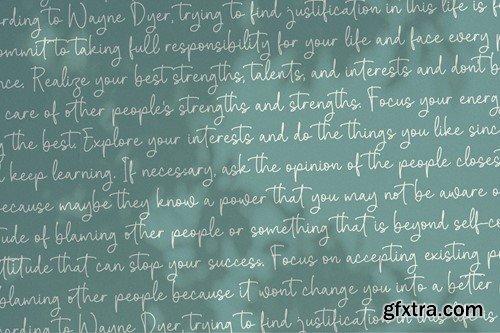 rding to Wayne Dyer, trying to find justification in this life is
ommit to taking full responsibility for your life and face every
nce. Realize your best strengths, talents, and interests and dont b
care of other people's strengths and strengths. Focus your energ
g the best. Explore your interests and do the things you like sinc
keep learning. If necessary, ask the opinion of the people closes
because maybe they know a power that you may not be aware o
tude of blaming other people or something that is beyond self-c
ttitude that can stop your success. Focus on accepting existing p
blaming other people because it wont change you into a better
rding to Wayne Dyer, trying to find justification in this life is
gfxtra.com